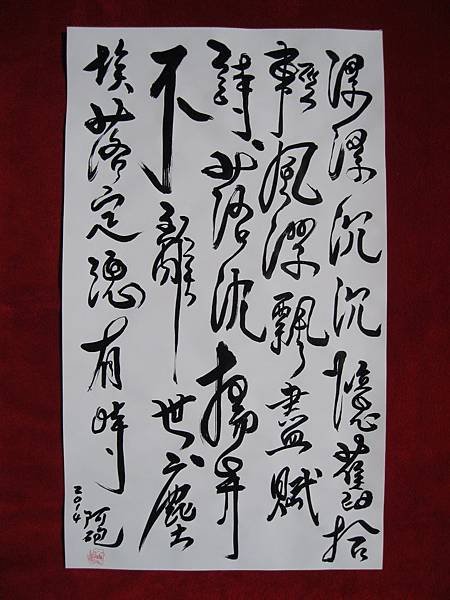 漂漂沉沉憶舊拾
輕風漂飄盡賦
詩落沈揚昇
不離世塵
埃落定總有時
2014 阿砲